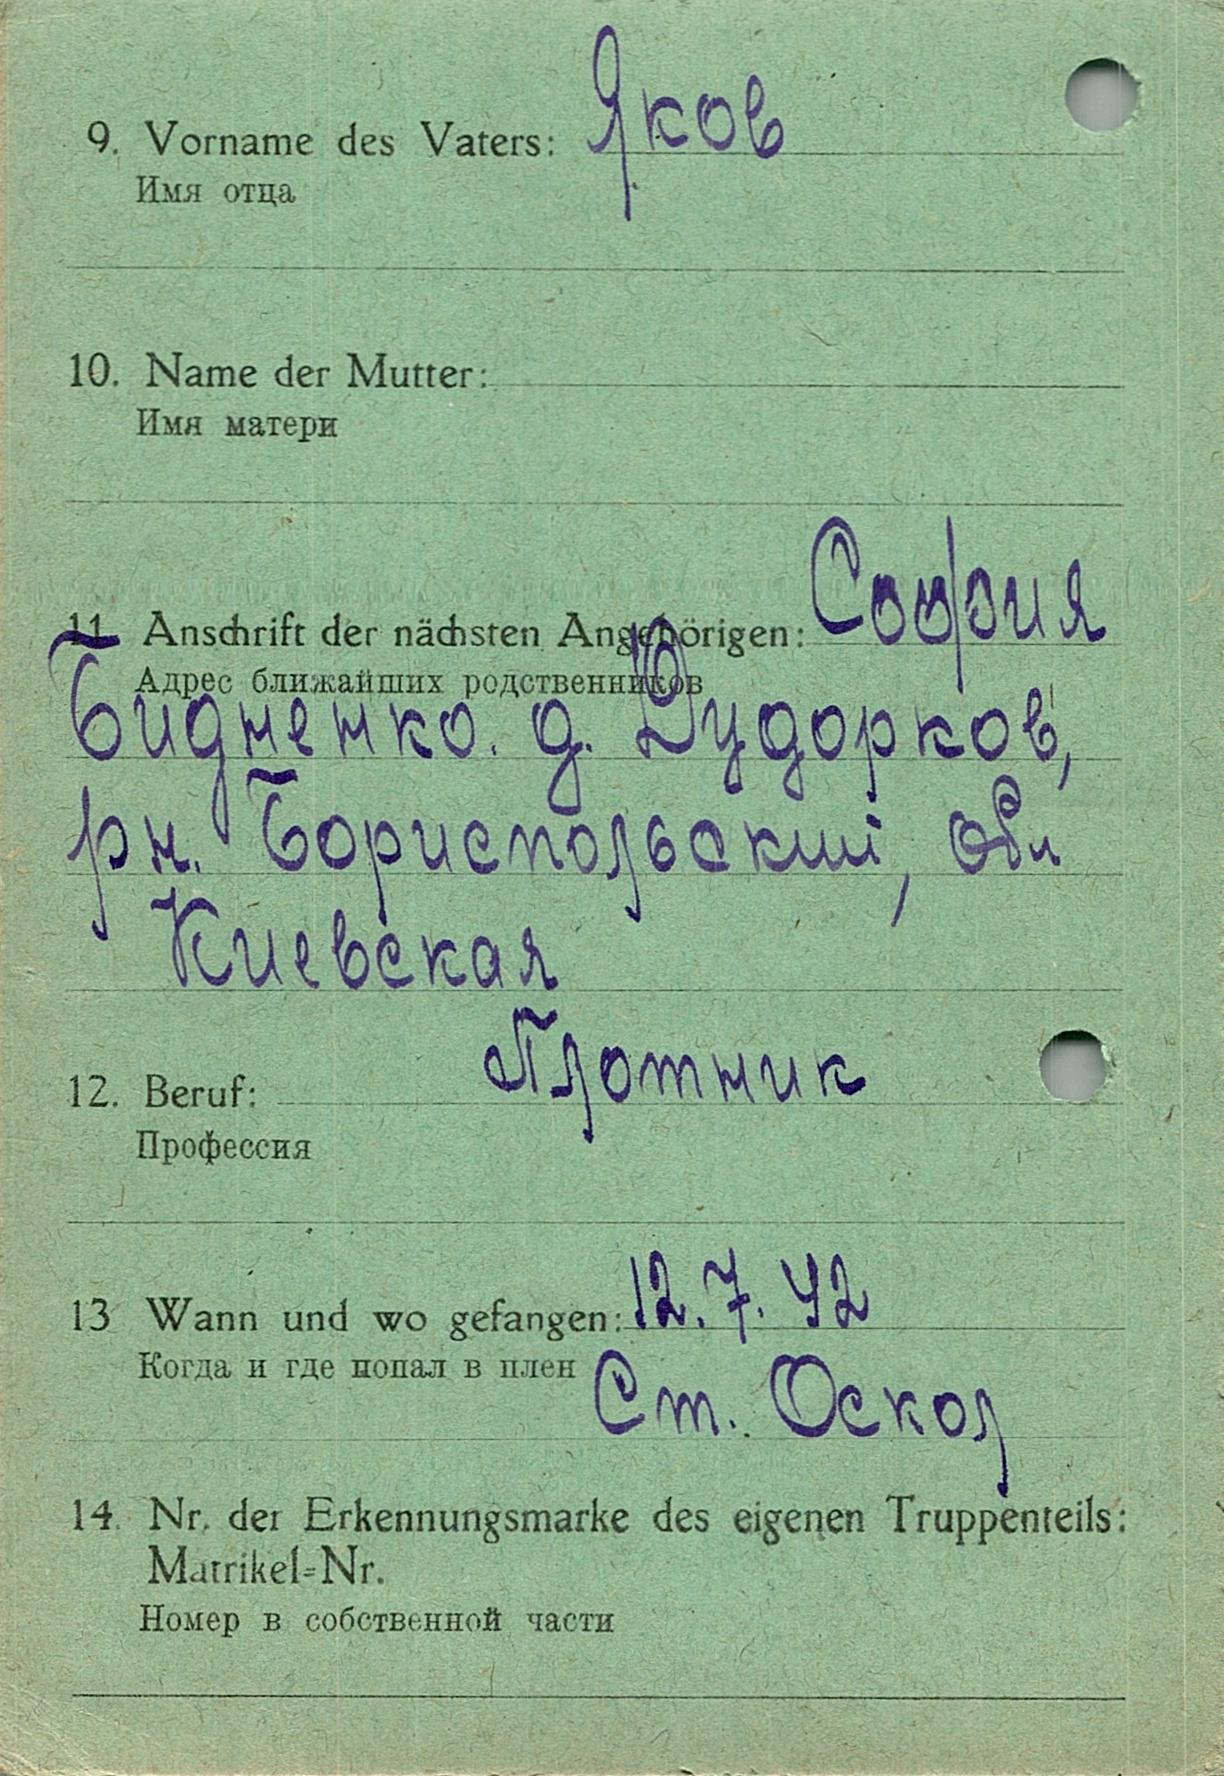 9. Vorname des Vaters: Яков
Имя отца
10. Name der Mutter:
Имя матери
11. Anschrift der nächsten Angehörigen: София
Адрес ближайших родственников
Бидненко. д. Дудорков,
рн. Бориспольский, обл
Киевская
Плотник
12. Beruf:
Профессия
13 Wann und wo gefangen: 12.7.42
Когда и где попал в плен Ст. Оскол
14. Nr. der Erkennungsmarke des eigenen Truppenteils:
Matrikel=Nr.
Номер в собственной части